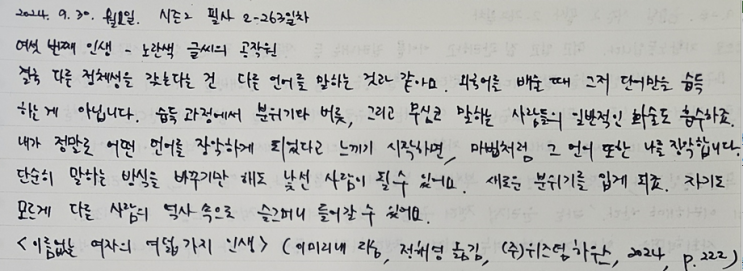 2024. 9. 30. 월요일. 시즌2 필사 2-263일차
여섯 번째 인생 - 노란색 글씨의 공작원
결국 다른 정체성을 갖는다는 건 다른 언어를 말하는 것과 같아요. 외국어를 배울 때 그저 단어만을 습득
하는 게 아닙니다. 습득 과정에서 분위기와 버릇, 그리고 무심코 말하는 사람들의 일반적인 화술도 흡수하죠.
내가 정말로 어떤 언어를 장악하게 되었다고 느끼기 시작하면, 마법처럼 그 언어 또한 나를 장악합니다.
단순히 말하는 방식을 바꾸기만 해도 낯선 사람이 될 수 있어요. 새로운 분위기를 입게 되죠. 자기도
모르게 다른 사람의 역사 속으로 슬그머니 들어갈 수 있어요.
<이름없는 여자의 여덟 가지 인생> (이미리내 지음, 정해영 옮김, (주)위즈덤하우스, 2024, p.222)